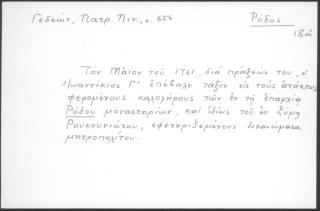 Γεδεών, Πατρ. Πιν., σ. 656
Ρόδος
18ος
Τὸν Μάϊον τοῦ 1761, διὰ πράξεώς του, ὁ
Ἰωαννίκιος Γ' ἐπέβαλε τάξιν εἰς τοὺς ἀτάκτως
φερομένους καλογήρους τῶν ἐν τῇ ἐπαρχίᾳ
Ρόδου μοναστηρίων, καὶ ἰδίως τοῦ ἐν Σύμῃ
Ρουκουνιώτου, σφετεριζομένους δικαιώματα
μητροπολίτου.